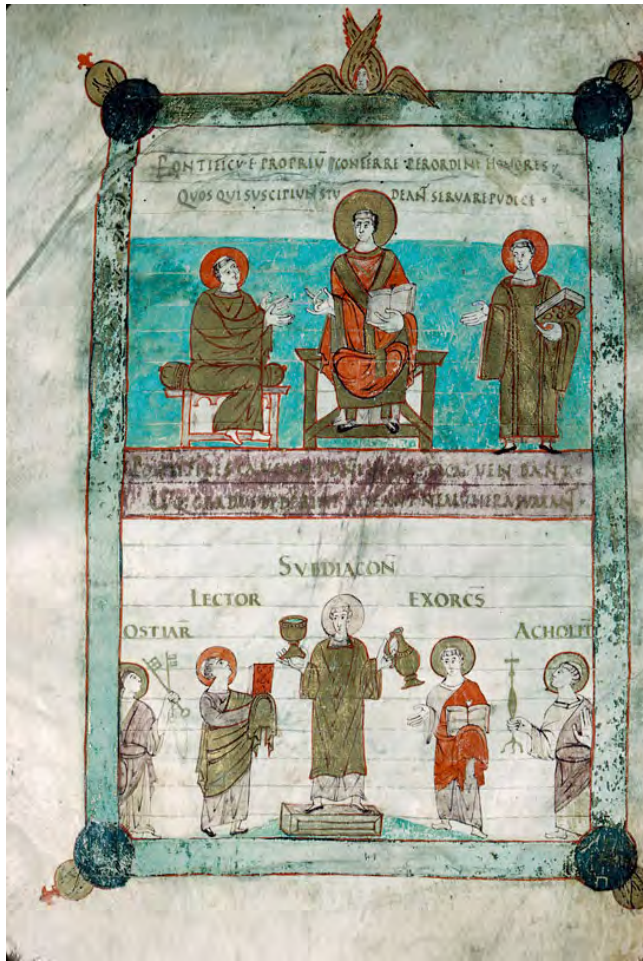 PONTIFICV̄ Ē PROPRIV̄ CONFERRE PER ORDINĒ HONORES·
QUOS QUI SUSCIPIUN̄ STUDEAN̄ SERUARE PUDICE·
PONTIFICES CAVEANT DN̄I VENDANT·
GRADUS NE MUNERA SUMAN̄·
SVBDIACON̄
LECTOR EXORCS̄
OSTIAR̄ ACHOLIT̄